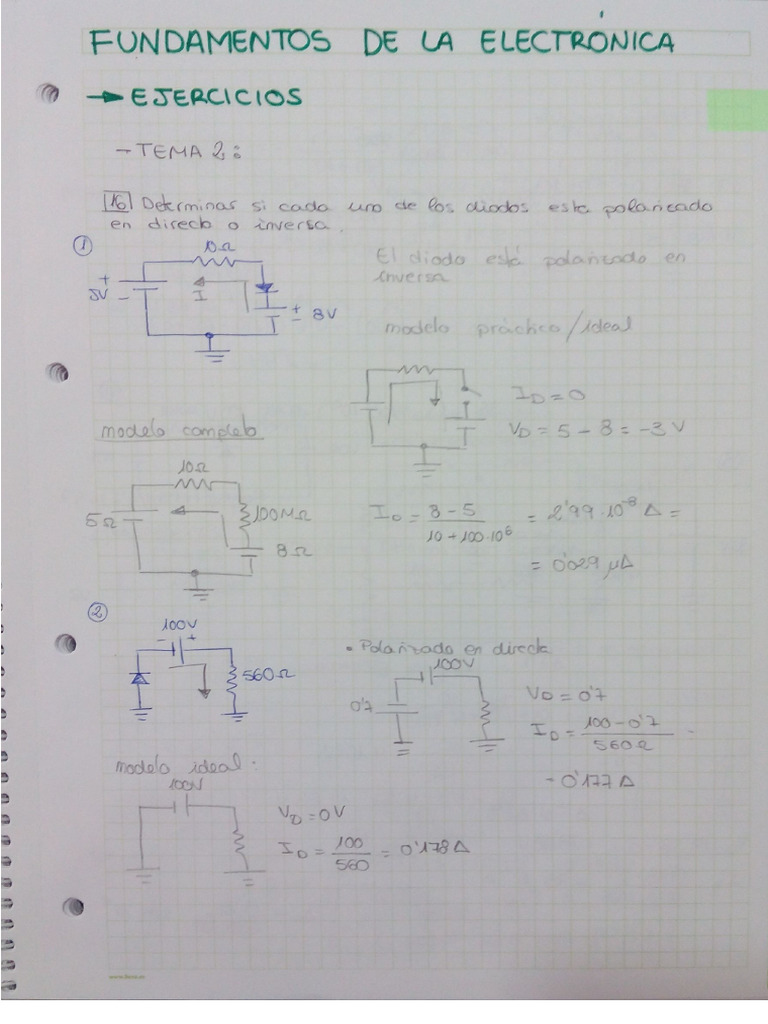 FUNDAMENTOS DE LA ELECTRÓNICA
→ EJERCICIOS
- TEMA 2:
16 Determinar si cada uno de los diodos esta polarizado
en directo o inversa.
1
10Ω
+
5V -
I
+
- 8V
El diodo está polarizado en
inversa
modelo práctico/ideal
I_D = 0
V_D = 5 - 8 = -3 V
modelo completo
10Ω
5Ω
100MΩ
8Ω
I_D = (8-5)/(10+100·10⁶) = 2'99·10⁻⁸ A =
= 0'029 μA
2
100V
- +
560Ω
• Polarizado en directa
100V
0'7
V_D = 0'7
I_D = (100-0'7)/(560Ω) =
= 0'177 A
modelo ideal:
100V
V_D = 0V
I_D = 100/560 = 0'178 A